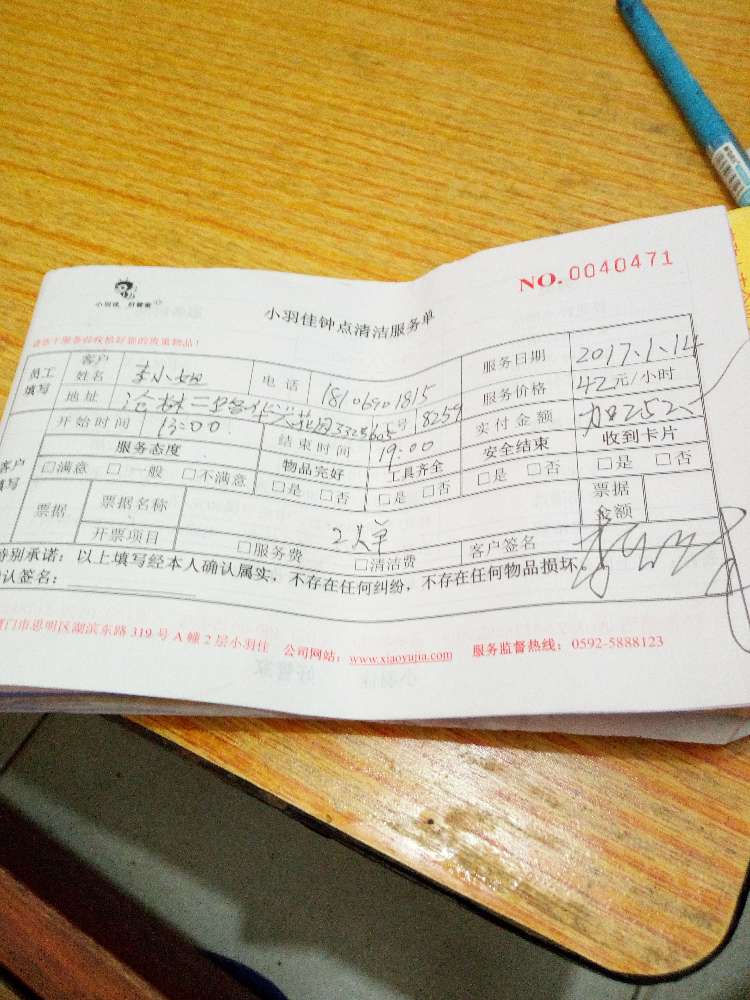 小羽佳 好管家
NO.0040471
小羽佳钟点清洁服务单
员工填写 客户姓名 李小姐 电话 18106901815 服务日期 2017.1.14
地址 沧林二路 号 8259 服务价格 42元/小时
开始时间 13:00 结束时间 19:00 实付金额 252
客户填写 服务态度 物品完好 工具齐全 安全结束 收到卡片
□满意 □一般 □不满意 □是 □否 □是 □否 □是 □否 □是 □否
票据 票据名称 票据金额
开票项目 □服务费 □清洁费 客户签名
2单
特别承诺：以上填写经本人确认属实，不存在任何纠纷，不存在任何物品损坏。
确认签名：
厦门市思明区湖滨东路 319 号 A 幢 2 层小羽佳 公司网站：www.xiaoyujia.com 服务监督热线：0592-5888123